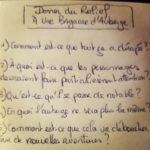 Donner du Relief
à une Baguette d'Auberge
1) Comment est-ce que tout ça a changé ?
2) À quoi est-ce que les personnages
devraient faire particulièrement attention ?
3) Qu'est-ce qu'il se passe de notable ?
4) En quoi l'auberge ne sera plus la même ?
5) Comment est-ce que cela va déboucher
sur de nouvelles aventures ?